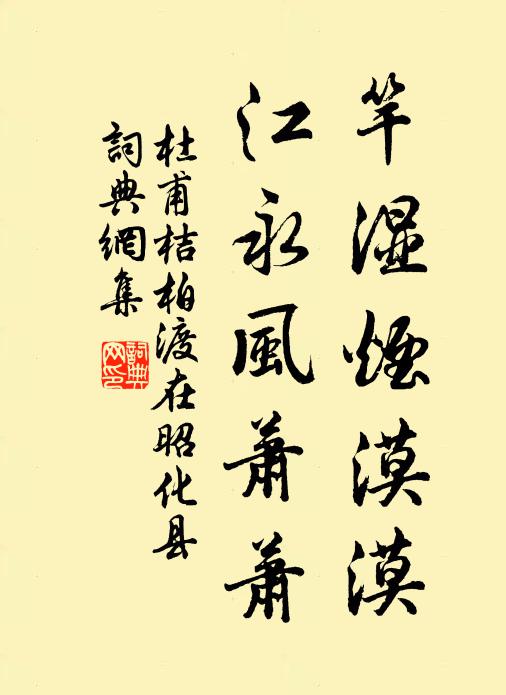 竿濕煙漠漠
江永風蕭蕭
杜甫桔柏渡在昭化县
詞典網集
詞典網印